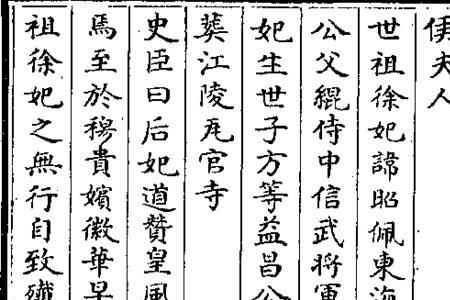 侯夫人
世祖徐妃諱昭佩東海
公父緄侍中信武將軍
妃生世子方等益昌公
葬江陵瓦官寺
史臣曰后妃道贊皇風
焉至於穆貴嬪徽華早
祖徐妃之無行自致殲